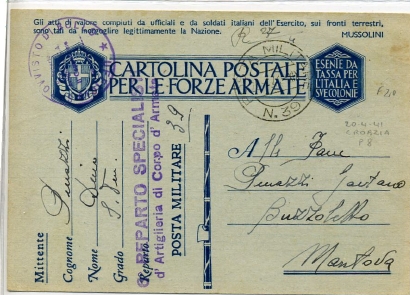 Gli atti di valore compiuti da ufficiali e da soldati italiani dell'Esercito, sui fronti terrestri,
sono tali da inorgoglire legittimamente la Nazione.
MUSSOLINI
CARTOLINA POSTALE
PER LE FORZE ARMATE
ESENTE DA
TASSA PER
L'ITALIA
SUE COLONIE
POSTA MILITARE
N. 39
20-4-41
CROAZIA
P 8
REPARTO SPECIALI
d'Artiglieria di Corpo d'Arma
Mittente
Cognome
Nome
Grado
S. Ten.
Reparto
POSTA MILITARE 39
Alla
Gaetano
Buzzoletto
Mantova